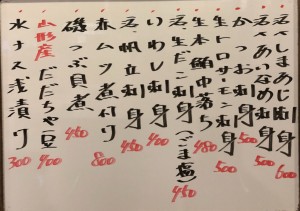 活〆しまあじ刺身 600
活〆あいなめ刺身 500
かつお刺身 500
生トロサーモン刺身 500
生本鮪中落ち 480
活、生だこ刺身(ごま塩) 450
いわし刺身 400
活、帆立刺身 450
赤ムツ煮付り 800
磯つぶ貝煮 450
山形産だだちゃ豆 400
水ナス浅漬り 300